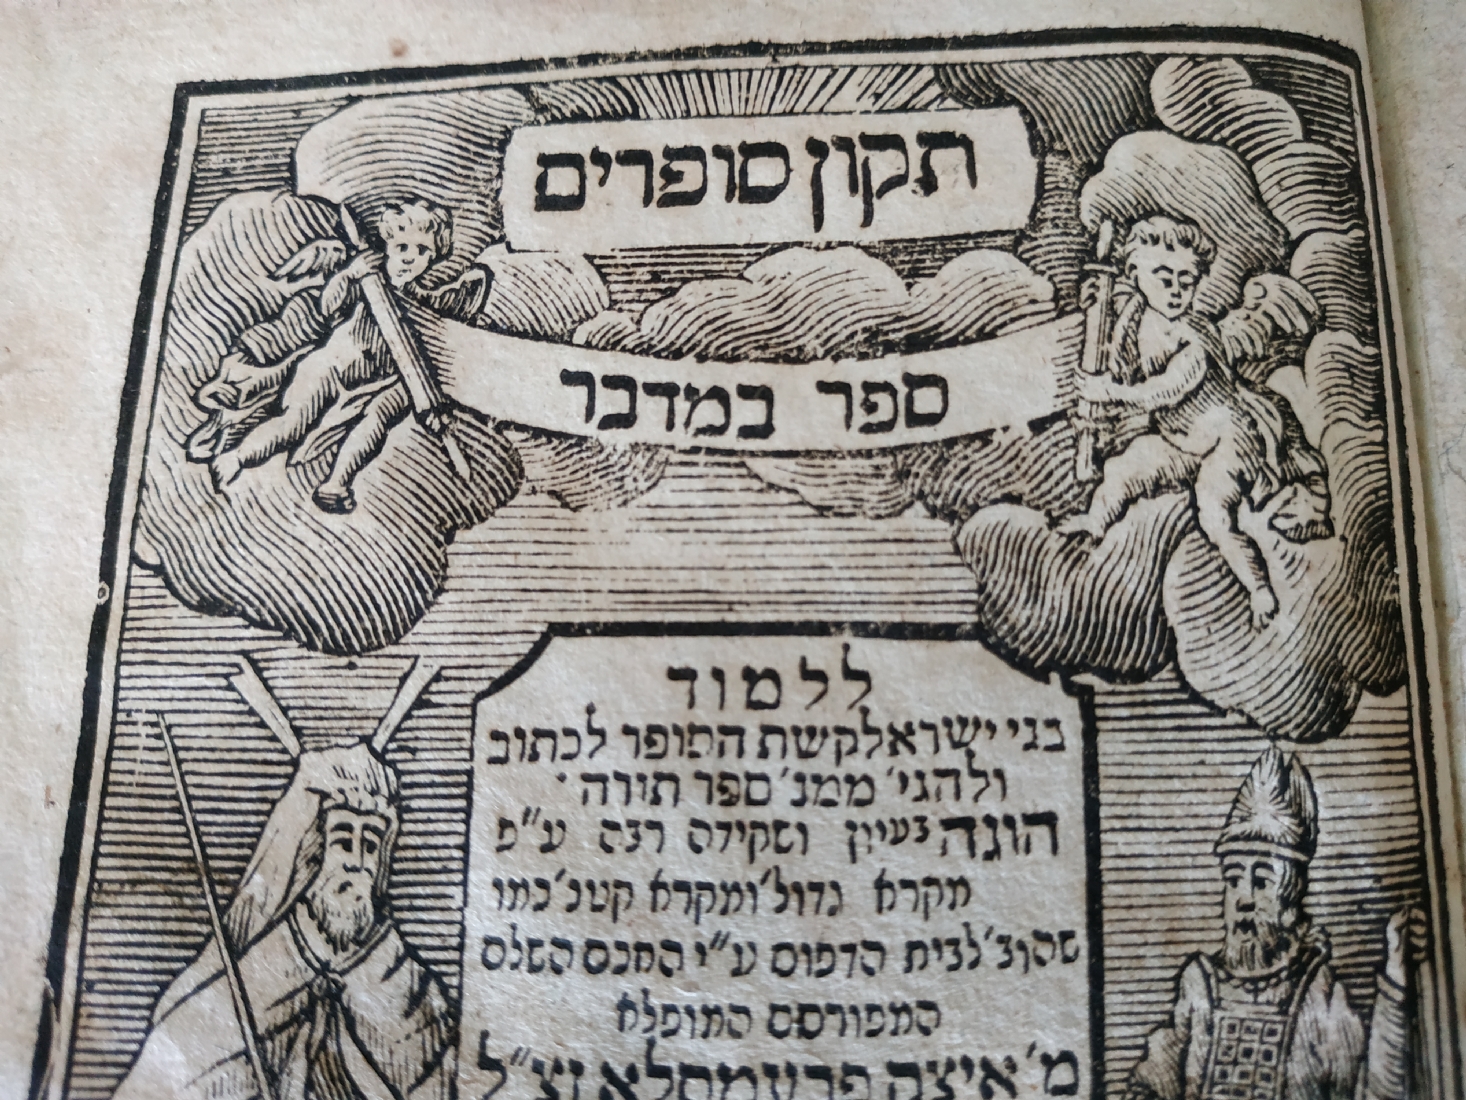 תקון סופרים
ספר במדבר
ללמוד
בני ישראל קשת הסופר לכתוב
ולהגי׳ ממנ׳ ספר תורה ·
הוגה בעיון ושקידה רבה ע״פ
מקרא גדול׳ ומקרא קטנ׳ כמו
שהוב׳ לבית הדפוס ע״י החכם השלם
המפורסם המופלא
מ׳ איצק פרעמסלא זצ״ל